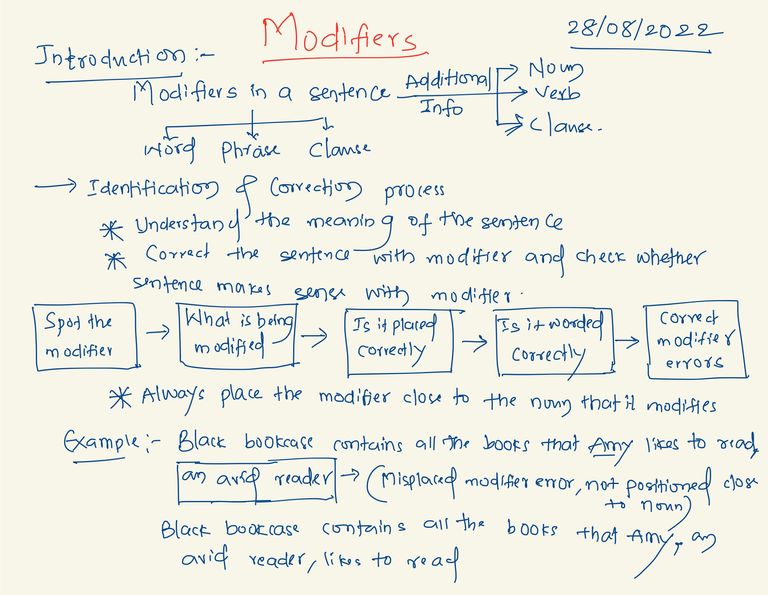 Modifiers
28/08/2022
Introduction :-
Modifiers in a sentence Additional Info Noun
Verb
Clause.
Word Phrase Clause
→ Identification & Correction process
* Understand the meaning of the sentence
* Correct the sentence with modifier and check whether
sentence makes sense with modifier.
Spot the modifier → What is being modified → Is it placed correctly → Is it worded correctly → Correct modifier errors
* Always place the modifier close to the noun that it modifies
Example :- Black bookcase contains all the books that Amy likes to read,
an avid reader → (Misplaced modifier error, not positioned close
to noun)
Black bookcase contains all the books that Amy, an
avid reader, likes to read